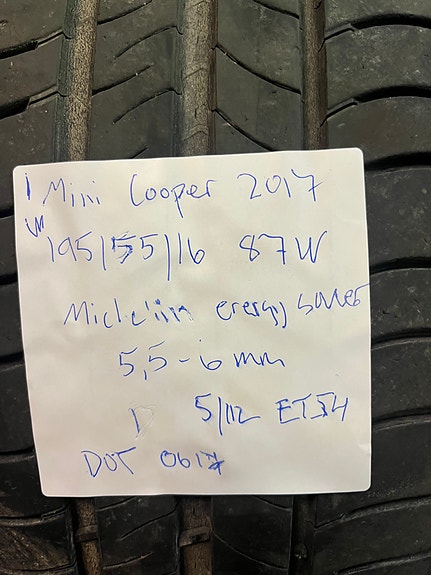 Mini Cooper 2017
195/55/16 87W
Michelin energy saver
5,5-6 mm
5/112 ET54
DOT 0617